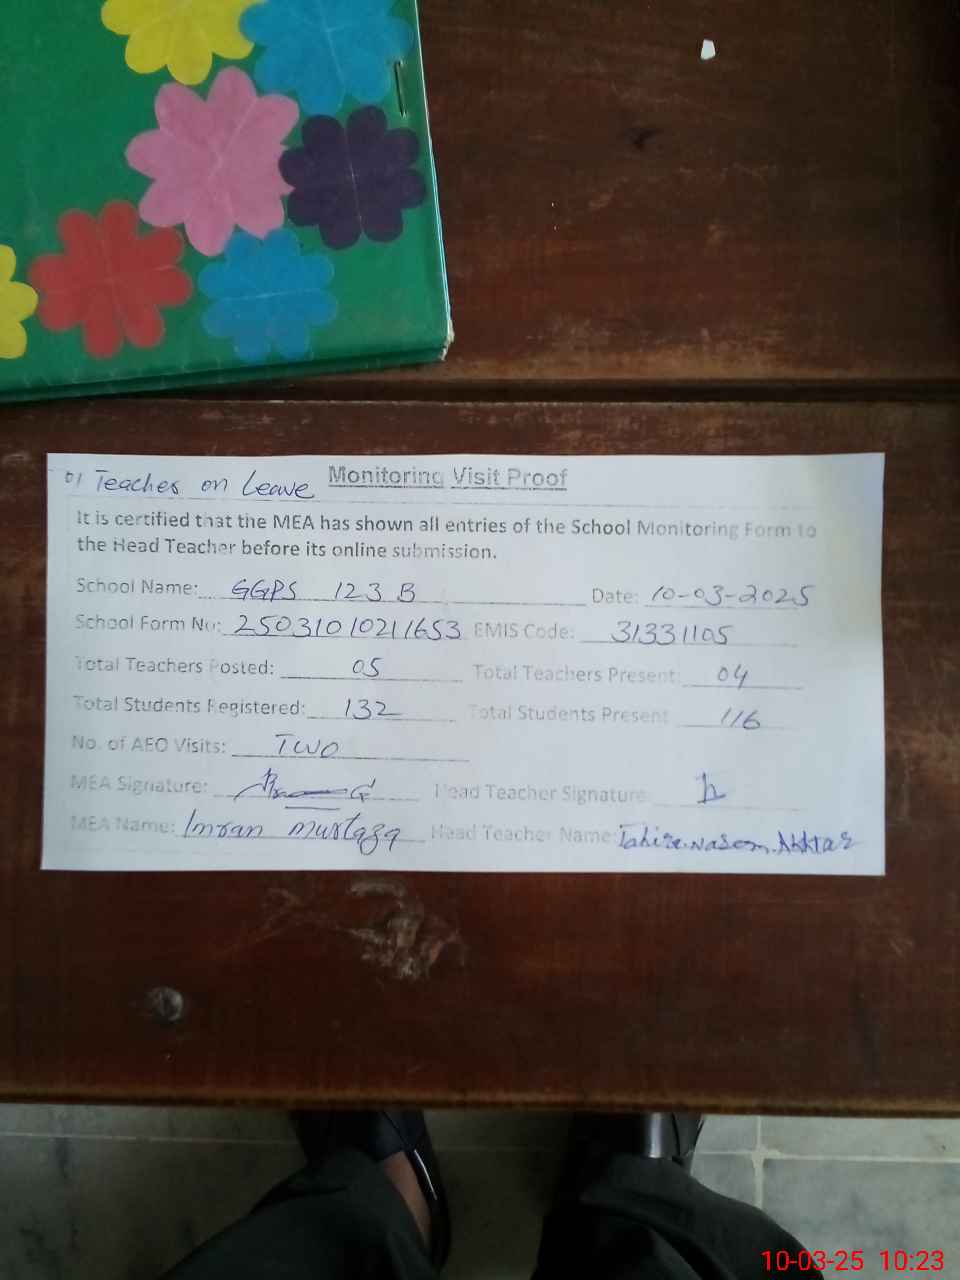 01 Teacher on Leave Monitoring Visit Proof
It is certified that the MEA has shown all entries of the School Monitoring Form to
the Head Teacher before its online submission.
School Name: GGPS 123 B Date: 10-03-2025
School Form No: 25031010211653 EMIS Code: 31331105
Total Teachers Posted: 05 Total Teachers Present: 04
Total Students Registered: 132 Total Students Present 116
No. of AEO Visits: TWO
MEA Signature: Head Teacher Signature
MEA Name: Imran murtaza Head Teacher Name: Tahira. Nasem. Akhtar
10-03-25 10:23